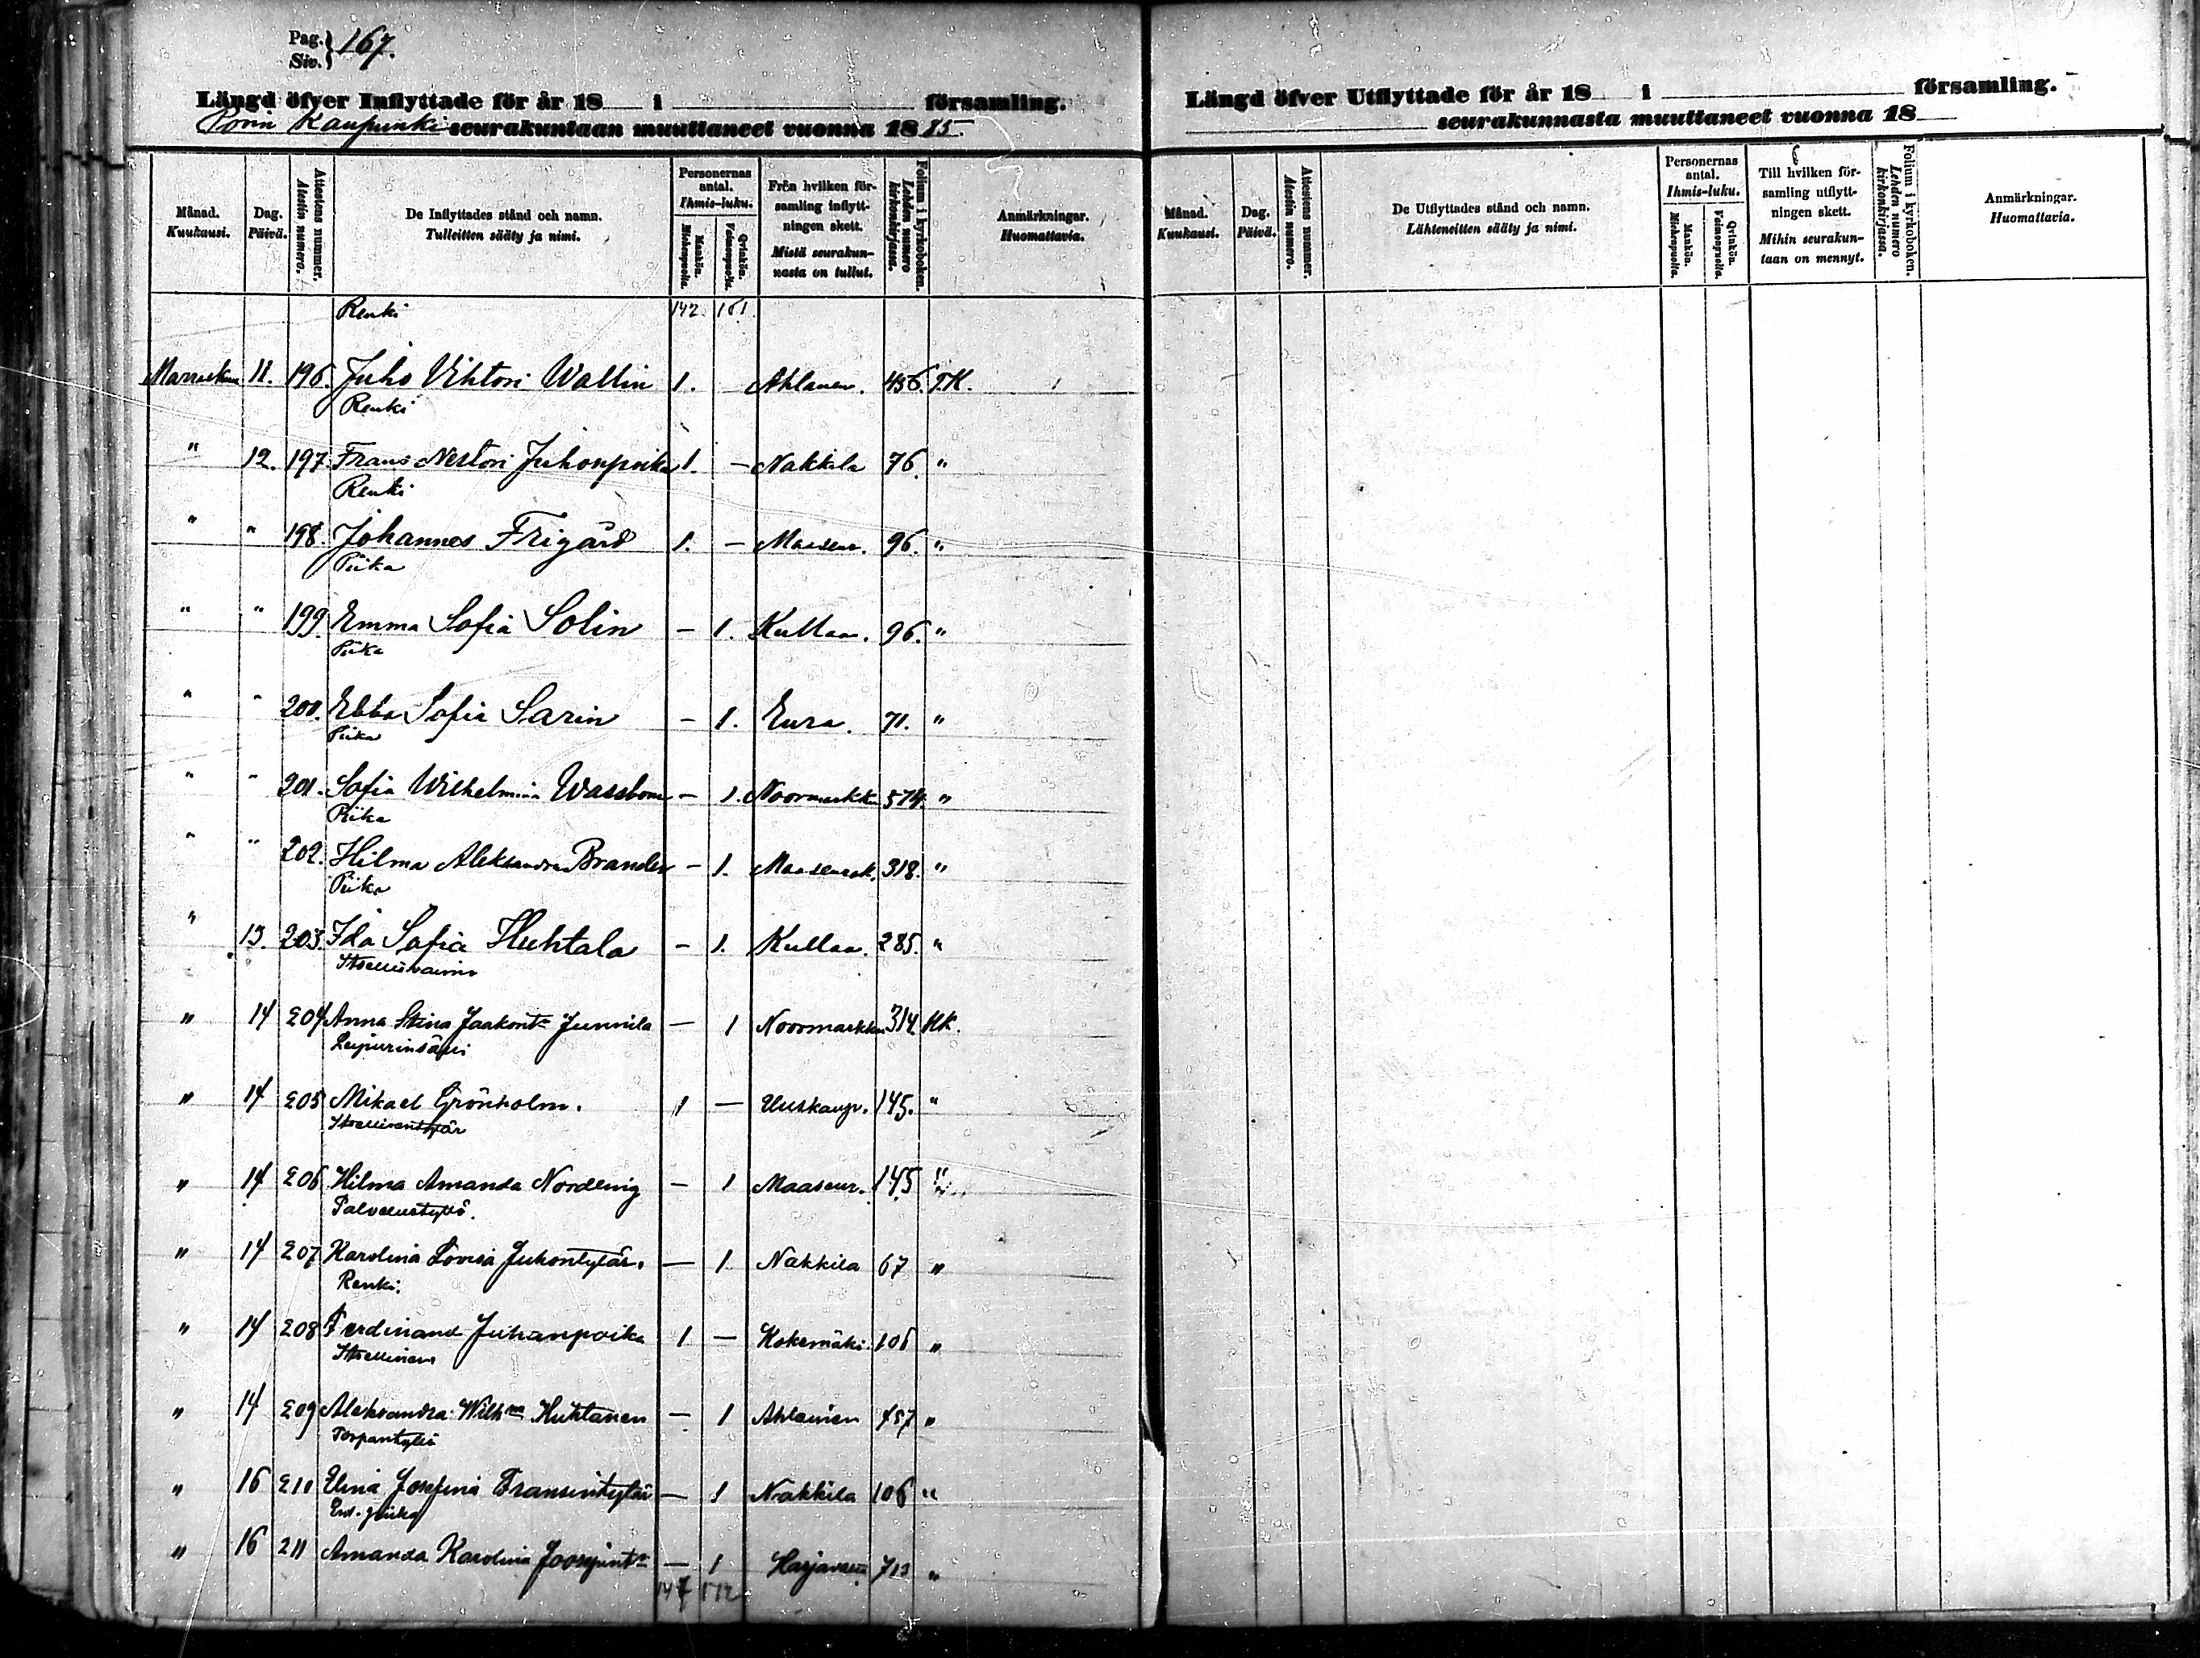 Pag. Siv. } 167.
Längd öfver Inflyttade för år 18 i församling.
Porin Kaupunki seurakuntaan muuttaneet vuonna 1885.
Månad. Kuukausi.
Dag. Päivä.
Attestens nummer. Atestin numero.
De Inflyttades stånd och namn. Tulleitten sääty ja nimi.
Personernas antal. Ihmis-luku.
Mankön. Miehenpuolia.
Qvinkön. Vaimonpuolia.
Från hvilken församling inflyttningen skett. Mistä seurakunnasta on tullut.
Folium i kyrkoboken. Lehden numero kirkonkirjassa.
Anmärkningar. Huomattavia.
Renki 142. 161.
Marrask 11. 196. Juho Vihtori Wallin 1. Ahlainen. 456. T.K.
Renki
" 12. 197. Frans Nestori Juhonpoika 1. — Nakkila 76. "
Renki
" " 198. Johannes Frigård 1. — Maaseur. 96. "
Piika
" " 199. Emma Sofia Solin — 1. Kullaa. 96. "
Piika
" " 200. Ebba Sofia Sarin — 1. Eura. 71. "
Piika
" " 201. Sofia Wilhelmina — 1. Noormarkk 574. "
Piika
" " 202. Hilma Aleksandra Brander — 1. Maaseurak. 318. "
Piika
" 13. 203. Ida Sofia Huhtala — 1. Kullaa. 285. "
" 14 204 Anna Stina Jaakont. Junnila — 1 Noormarkku 314 KK.
Leipurinsälli
" 14 205 Mikael Grönholm. 1 — Uuskaup. 145. "
Itsellisentytär
" 14 206 Hilma Amanda — 1 Maaseur. 145 "
Palvelustyttö.
" 14 207 Karolina Lovisa Juhontytär. — 1 Nakkila 67 "
Renki.
" 14 208 Ferdinand Juhanpoika 1 — Kokemäki "
Itsellinen
" 14 209 Aleksandra Wilhna Huhtanen — 1 Ahlainen 457 "
Torpantyttö
" 16 210 Elina Josefina Fransintytär — 1 Nakkila 106 "
Ent. piika
" 16 211 Amanda Karolina Joosepint. — 1 Harjavalta 713 "
147 172
Längd öfver Utflyttade för år 18 i församling.
seurakunnasta muuttaneet vuonna 18
Månad. Kuukausi.
Dag. Päivä.
Attestens nummer. Atestin numero.
De Utflyttades stånd och namn. Lähteneitten sääty ja nimi.
Personernas antal. Ihmis-luku.
Mankön. Miehenpuolia.
Qvinkön. Vaimonpuolia.
Till hvilken församling utflyttningen skett. Mihin seurakuntaan on mennyt.
Folium i kyrkoboken. Lehden numero kirkonkirjassa.
Anmärkningar. Huomattavia.